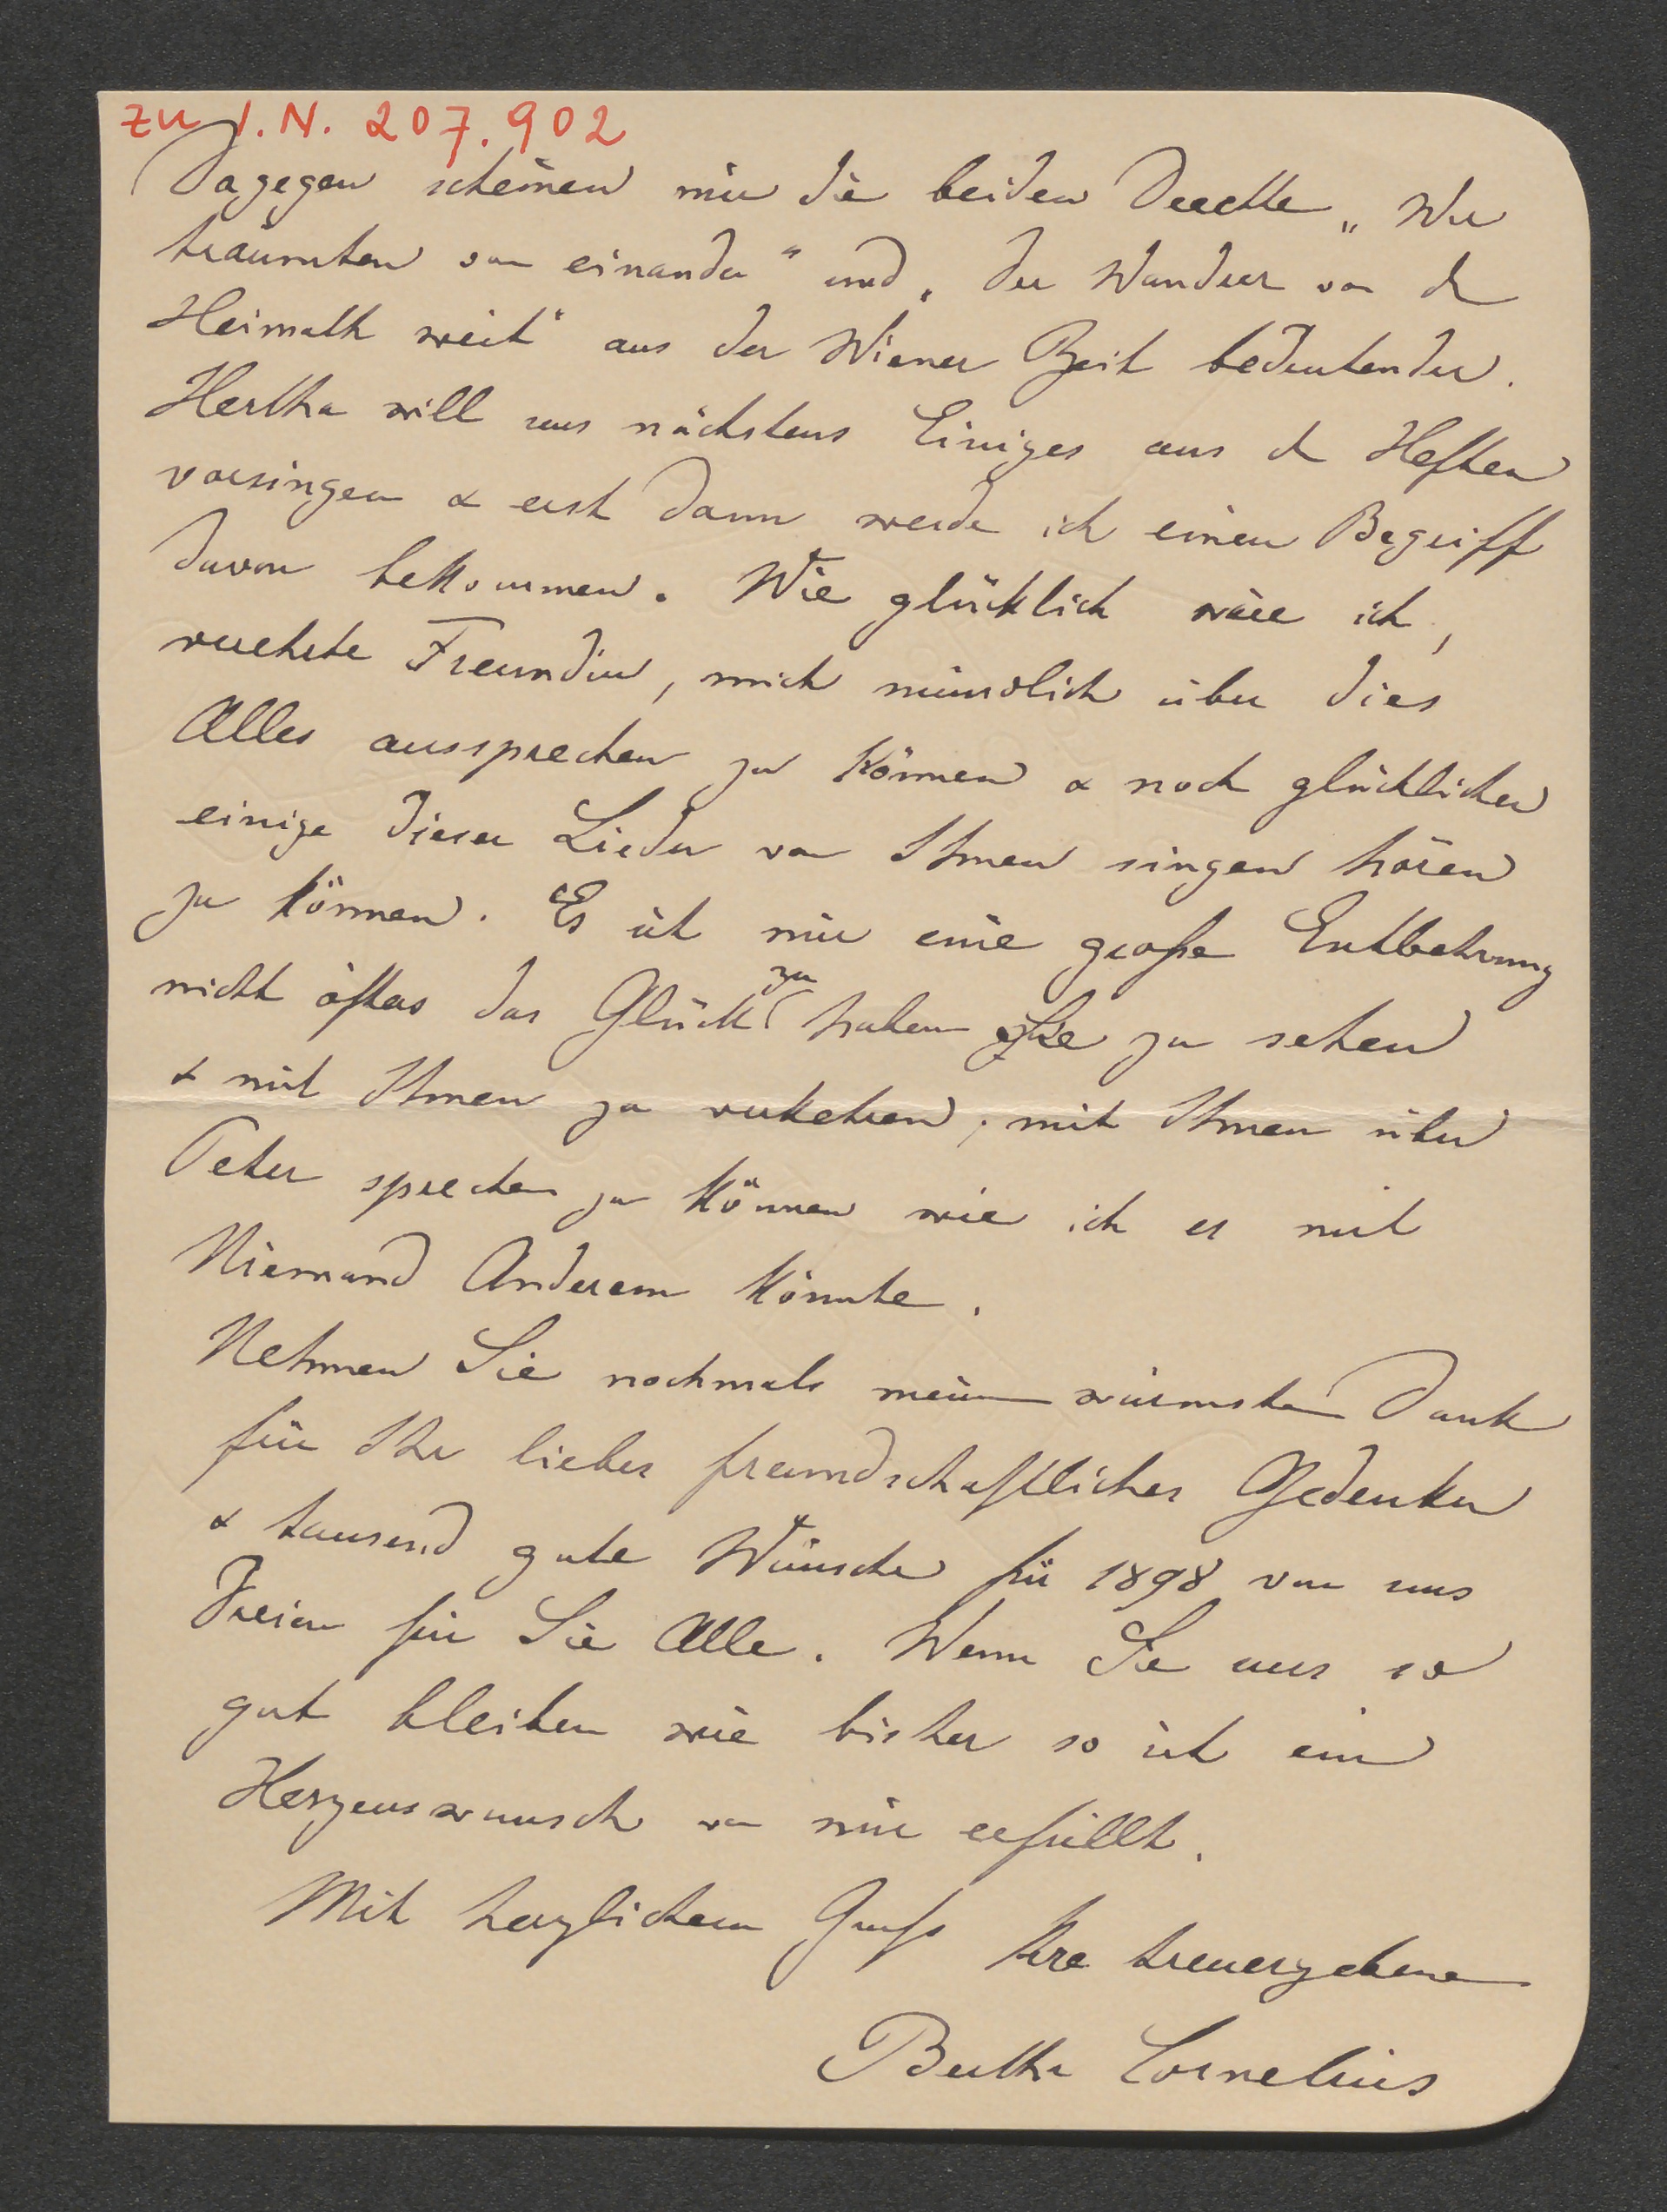 zu I.N. 207.902
Dagegen scheinen mir die beiden Duette „Wir
träumten von einander" und „Der Wandrer von der
Heimath weit" aus der Wiener Zeit bedeutender.
Hertha will uns nächstens Einiges aus den Heften
vorsingen & erst dann werde ich einen Begriff
davon bekommen. Wie glücklich wäre ich,
verehrte Freundin, mich mündlich über dies
Alles aussprechen zu können & noch glücklicher
einige dieser Lieder von Ihnen singen hören
zu können. Es ist mir eine große Entbehrung
nicht öfters das Glück zu haben Sie zu sehen
& mit Ihnen zu verkehren, mit Ihnen über
Peter sprechen zu können wie ich es mit
Niemand Anderem könnte.
Nehmen Sie nochmals meinen wärmsten Dank
für Ihr liebes freundschaftliches Gedenken
& tausend gute Wünsche für 1898 von uns
Dreien für Sie Alle. Wenn Sie uns so
gut bleiben wie bisher so ist ein
Herzenswunsch von mir erfüllt.
Mit herzlichem Gruß Ihre treuergebene
Bertha Cornelius